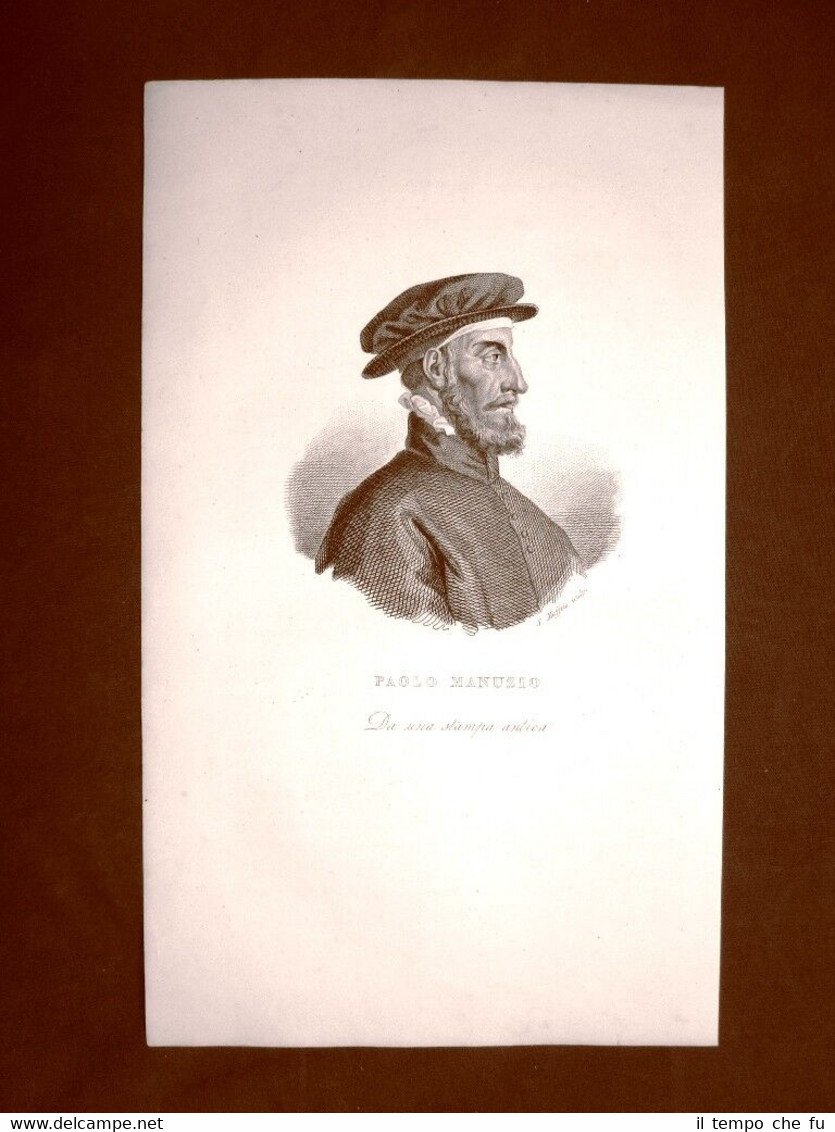 PAOLO MANUZIO
Da una stampa antica
delcampe.net
il tempo che fu